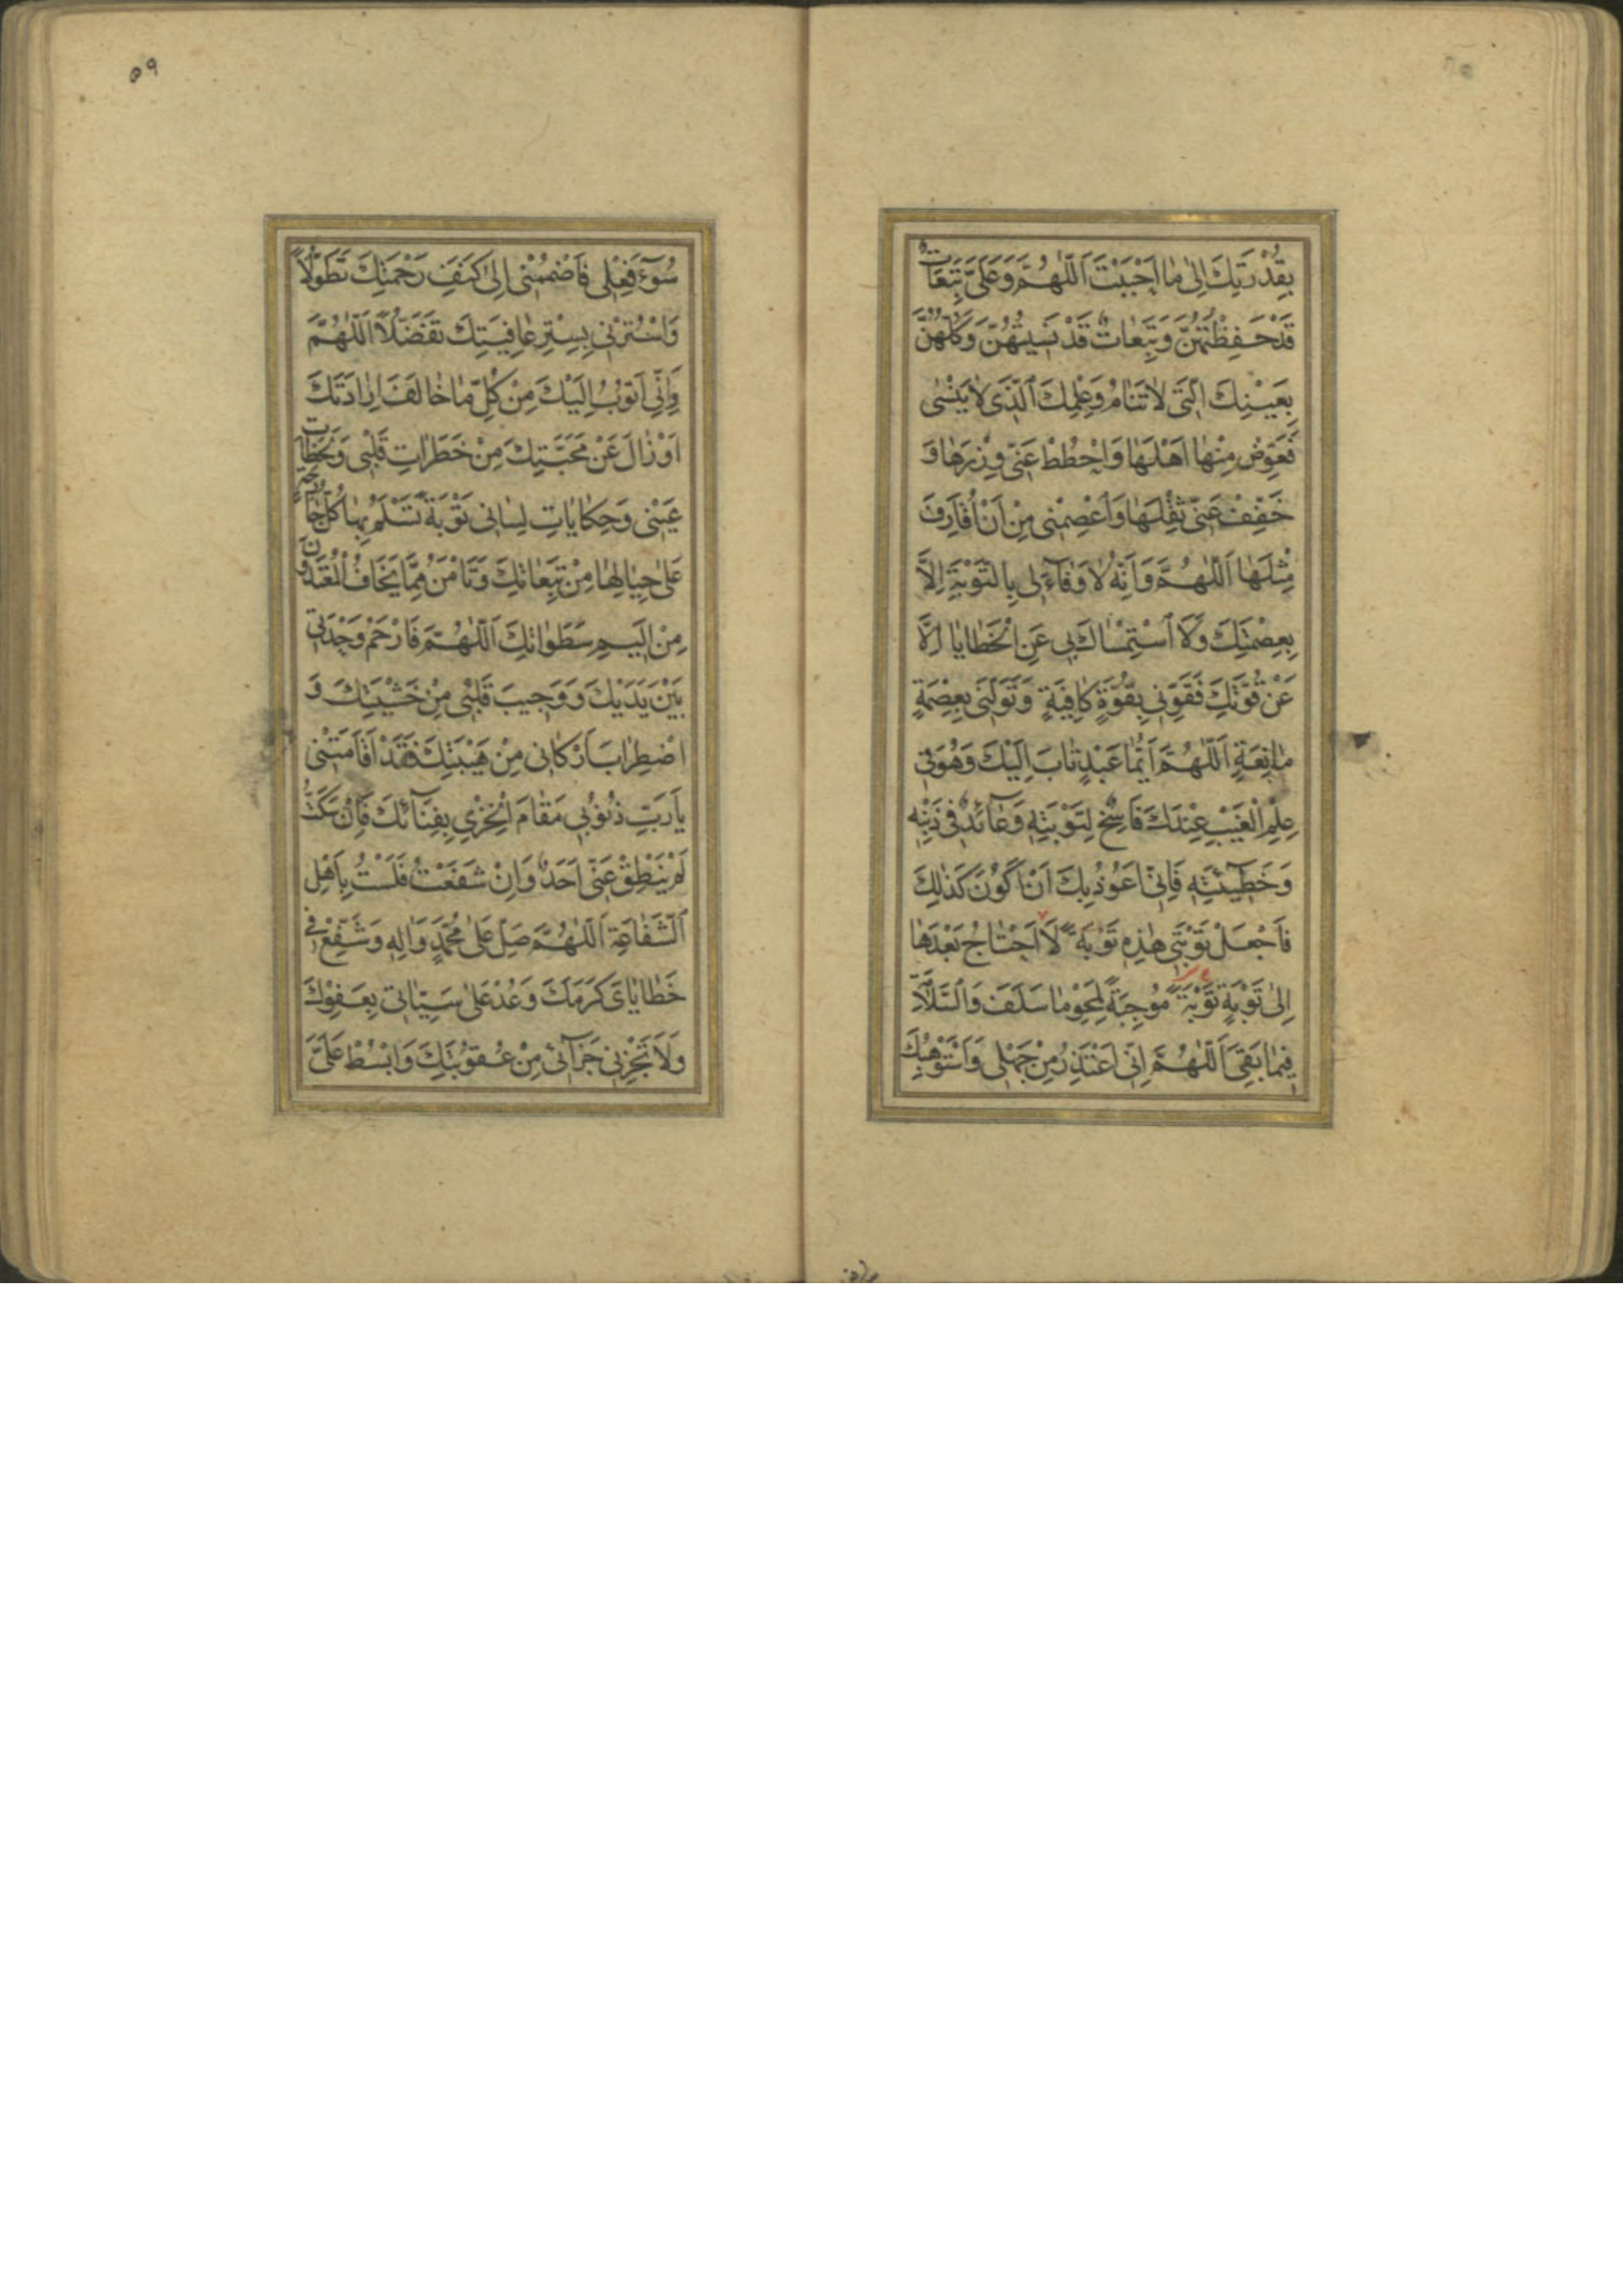 بِقُدْرَتِكَ اِلىٰ مٰا اَحْبَبْتَ اَللّٰهُمَّ وَعَلَىَّ تَبِعَاتٌ
قَدْ حَفِظْتُهُنَّ وَتَبِعٰاتٌ قَدْ نَسيتُهُنَّ وَكُلُّهُنَّ
بِعَيْنِكَ الَّتى لاٰ تَنٰامُ وَعِلْمِكَ الَّذى لاٰ يَنْسٰى
فَعَوِّضْ مِنْهٰا اَهْلَهٰا وَاحْطُطْ عَنّى وِزْرَهٰا وَ
خَفِّفْ عَنّى ثِقْلَهٰا وَاعْصِمْنى مِنْ اَنْ اُقٰارِفَ
مِثْلَهٰا اَللّٰهُمَّ وَاَنَّهُ لاٰ وَفٰاءَ لى بِالتَّوْبَةِ اِلاَّ
بِعِصْمَتِكَ وَلاَ اسْتِمْسٰاكَ بى عَنِ الْخَطٰايٰا اِلاَّ
عَنْ قُوَّتِكَ فَقَوِّنى بِقُوَّةٍ كٰافِيَةٍ وَتَوَلَّنى بِعِصْمَةٍ
مٰانِعَةٍ اَللّٰهُمَّ اَيُّمٰا عَبْدٍ تٰابَ اِلَيْكَ وَهُوَ فى
عِلْمِ الْغَيْبِ عِنْدَكَ فَاسِخٌ لِتَوْبَتِه وَعٰائِدٌ فى ذَنْبِه
وَخَطيۤئَتِه فَاِنّى اَعُوذُ بِكَ اَنْ اَكُونَ كَذٰلِكَ
فَاجْعَلْ تَوْبَتى هٰذِه تَوْبَةً لاَ اَحْتٰاجُ بَعْدَهٰا
اِلىٰ تَوْبَةٍ تَوْبَةً مُوجِبَةً لِمَحْوِ مٰا سَلَفَ وَالسَّلاٰمَةِ
فيمٰا بَقِىَ اَللّٰهُمَّ اِنّى اَعْتَذِرُ مِنْ جَهْلى وَاَسْتَوْهِبُكَ
٥٩
سُوۤءَ فِعْلى فَاضْمُمْنى اِلىٰ كَنَفِ رَحْمَتِكَ تَطَوُّلاً
وَاسْتُرْنى بِسِتْرِ عٰافِيَتِكَ تَفَضُّلاً اَللّٰهُمَّ
وَاِنّى اَتُوبُ اِلَيْكَ مِنْ كُلِّ مٰا خٰالَفَ اِرٰادَتَكَ
اَوْ زٰالَ عَنْ مَحَبَّتِكَ مِنْ خَطَرٰاتِ قَلْبى وَلَحَظٰاتِ
عَيْنى وَحِكٰايٰاتِ لِسٰانى تَوْبَةً تَسْلَمُ بِهٰا كُلُّ جٰارِحَةٍ
عَلىٰ حِيٰالِهٰا مِنْ تَبِعٰاتِكَ وَتَاْمَنُ مِمّٰا يَخٰافُ الْمُعْتَدُونَ
مِنْ اَليمِ سَطَوٰاتِكَ اَللّٰهُمَّ فَارْحَمْ وَحْدَتى
بَيْنَ يَدَيْكَ وَوَجيبَ قَلْبى مِنْ خَشْيَتِكَ وَ
اضْطِرٰابَ اَرْكٰانى مِنْ هَيْبَتِكَ فَقَدْ اَقٰامَتْنى
يٰا رَبِّ ذُنُوبى مَقٰامَ الْخِزْىِ بِفِنٰاۤئِكَ فَاِنْ سَكَتُّ
لَمْ يَنْطِقْ عَنّى اَحَدٌ وَاِنْ شَفَعْتُ فَلَسْتُ بِاَهْلِ
الشَّفٰاعَةِ اَللّٰهُمَّ صَلِّ عَلىٰ مُحَمَّدٍ وَاٰلِه وَشَفِّعْ فى
خَطٰايٰاىَ كَرَمَكَ وَعُدْ عَلىٰ سَيِّئٰاتى بِعَفْوِكَ
وَلاَ تَجْزِنى جَزٰاۤئى مِنْ عُقُوبَتِكَ وَابْسُطْ عَلَىَّ